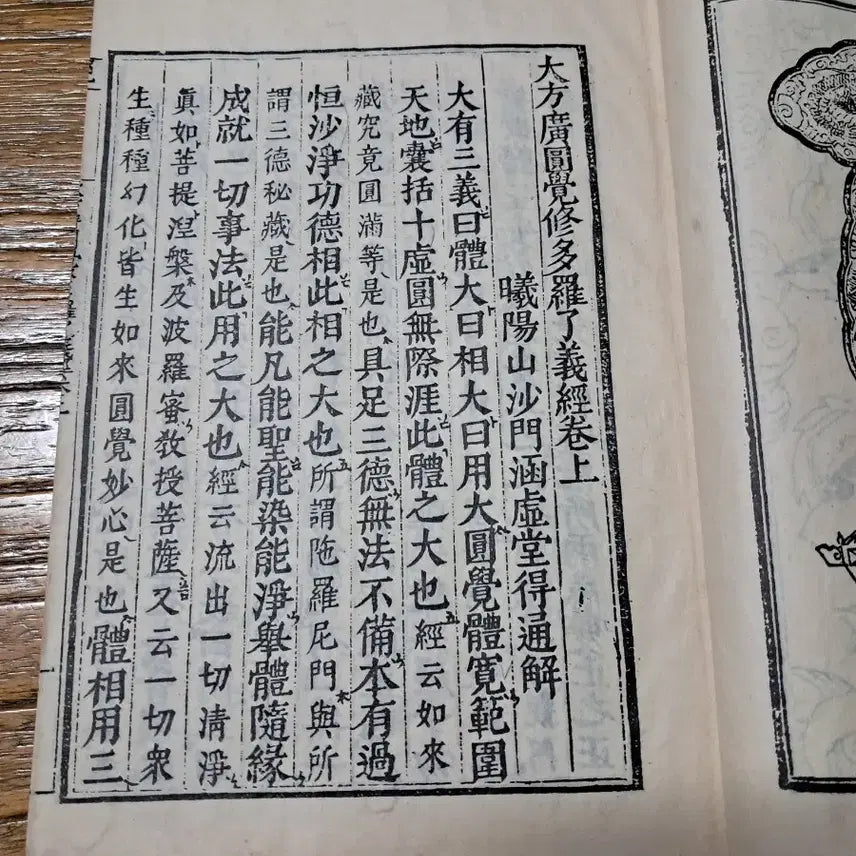 大方廣圓覺修多羅了義經卷上
曦陽山沙門涵虛堂得通解
大有三義曰體大曰相大曰用大圓覺體寬範圍
天地囊括十虛圓無際涯此體之大也經云如來
藏究竟圓滿等是也具足三德無法不備本有過
恒沙淨功德相此相之大也所謂陁羅尼門與所
謂三德秘藏是也能凡能聖能染能淨舉體隨緣
成就一切事法此用之大也經云流出一切清淨
眞如菩提涅槃及波羅蜜敎授菩薩又云一切衆
生種種幻化皆生如來圓覺妙心是也體相用三